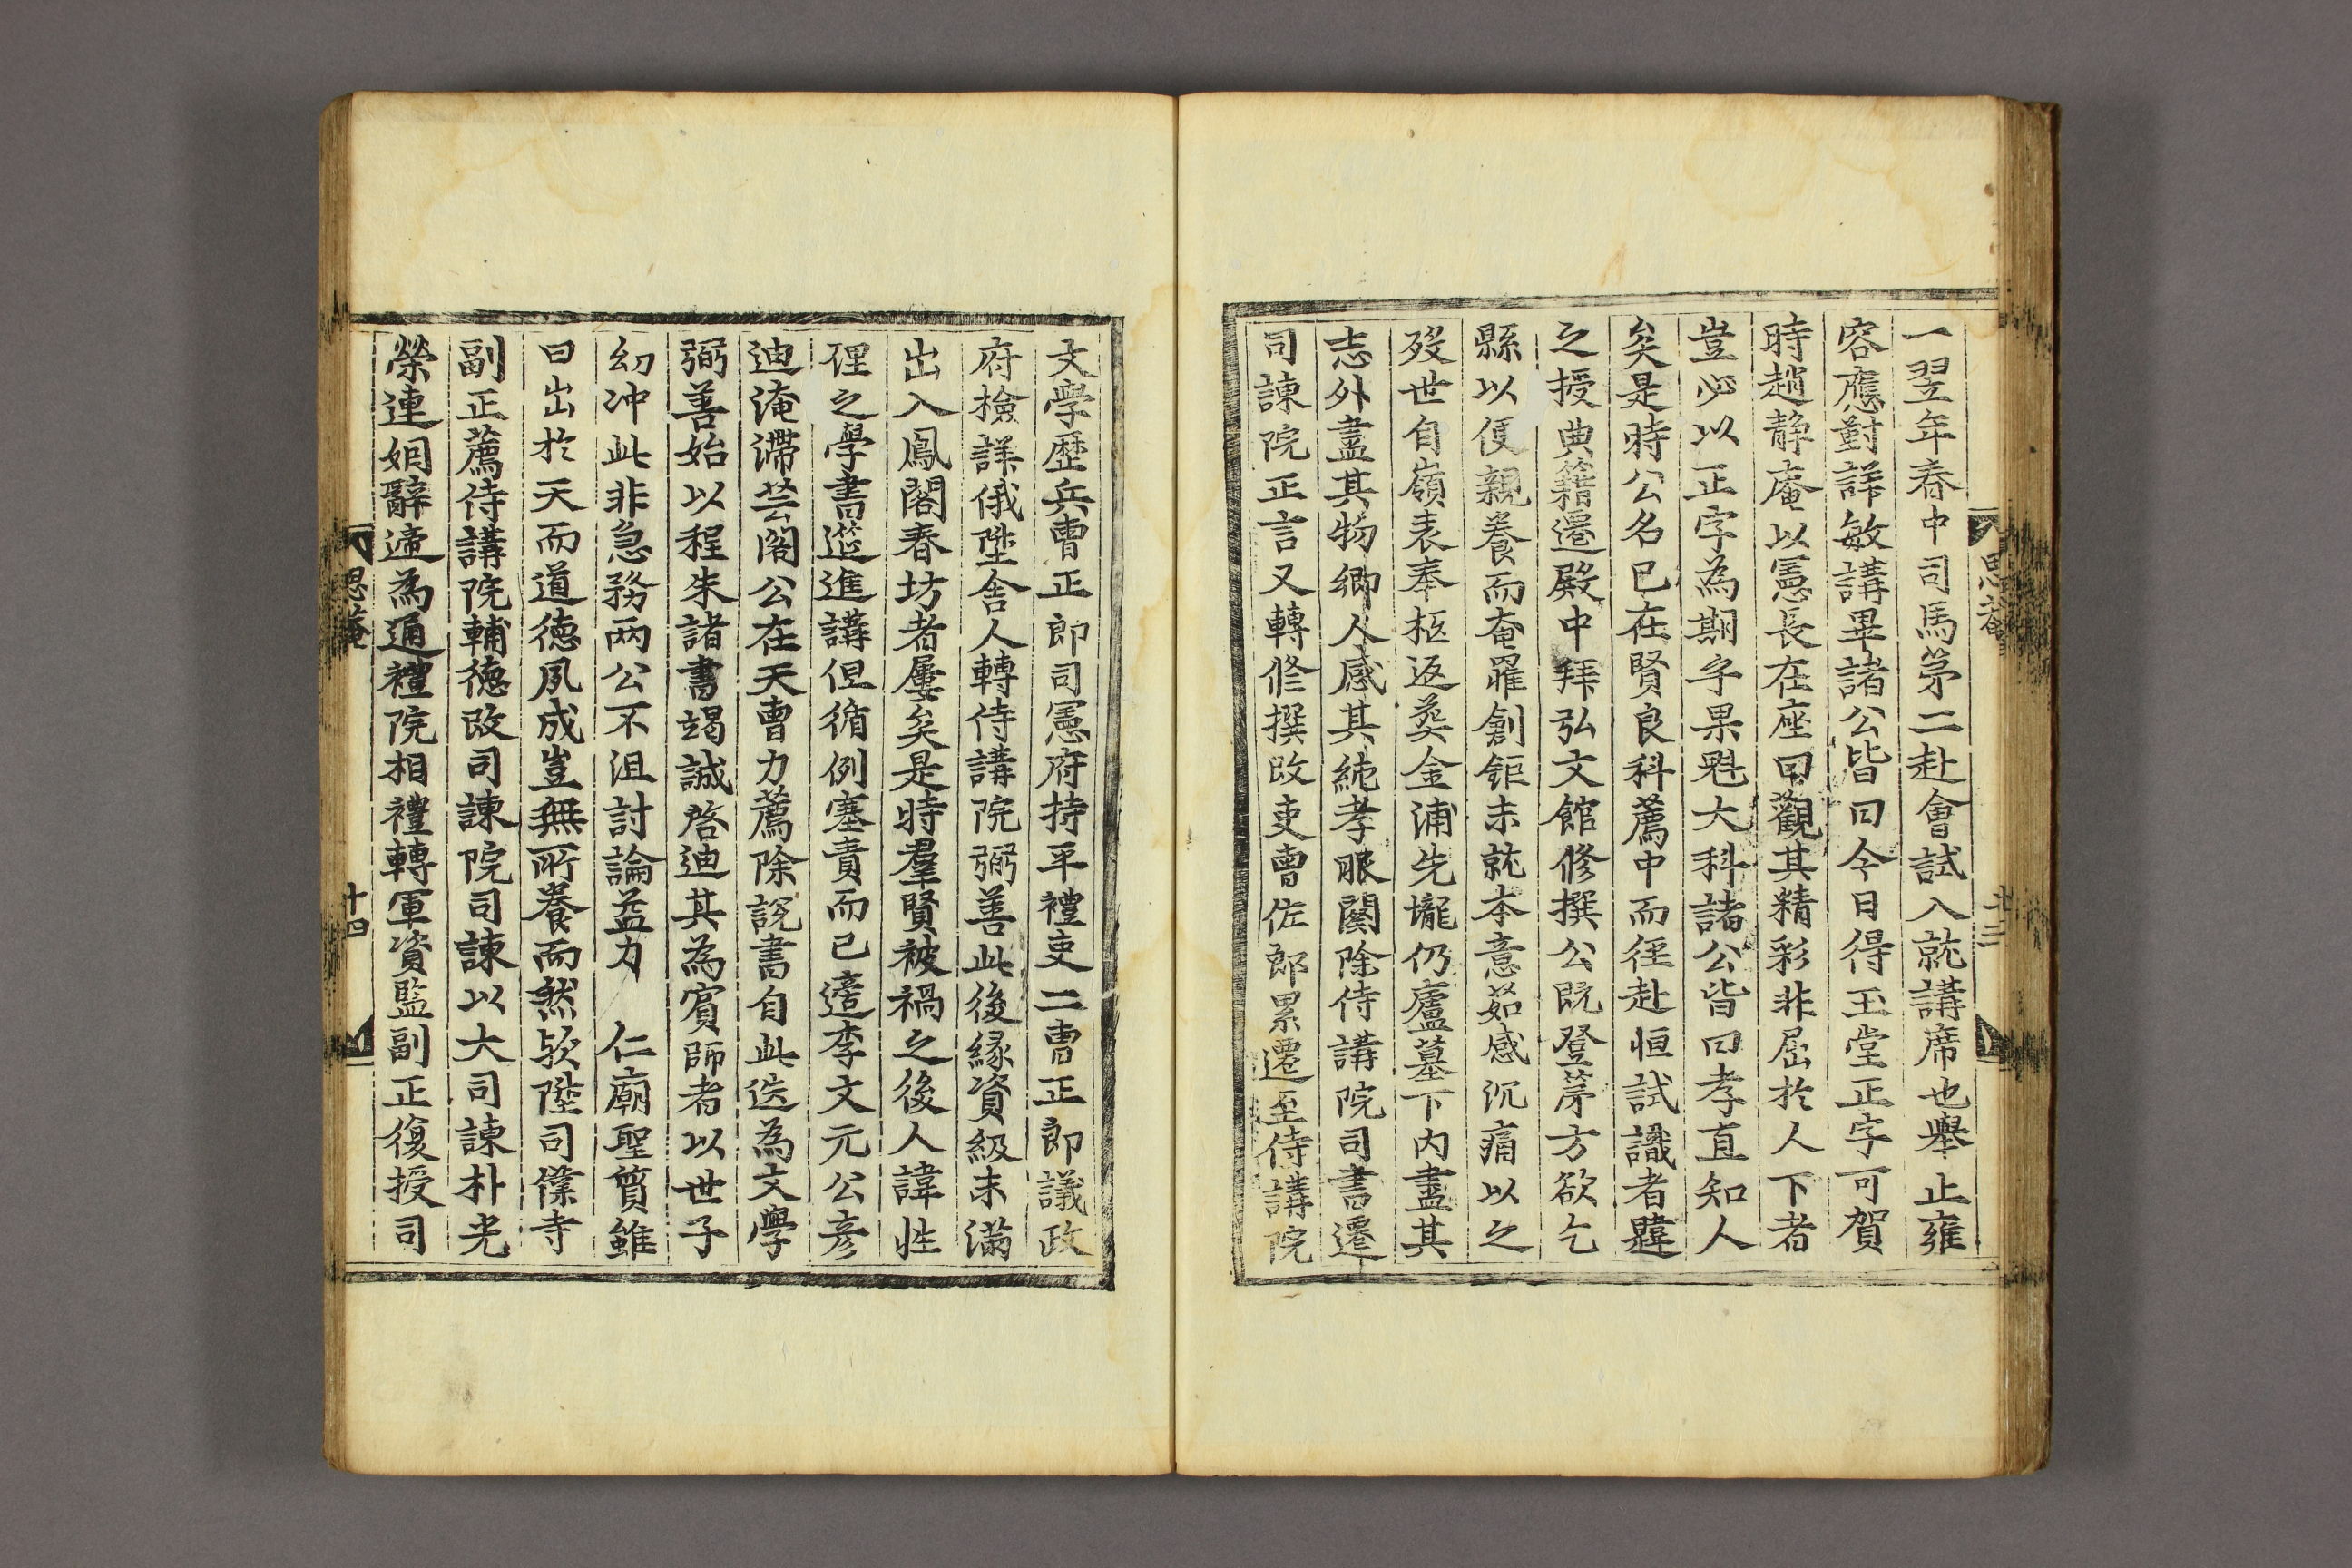 思菴
十三
一翌年春中司馬茅二赴會試入就講席也舉止雍
容應對詳敏講畢諸公皆曰今日得玉堂正字可賀
時趙靜庵以憲長在座曰觀其精彩非屈於人下者
豈必以正字為期乎果魁大科諸公皆曰孝直知人
矣是時公名已在賢良科薦中而徑赴恒試識者韙
之授典籍遷殿中拜弘文館修撰公既登茅方欲乞
縣以便親養而奄罹創鉅未就本意茹感沉痛以之
歿世自嶺表奉柩返葬金浦先壠仍廬墓下內盡其
志外盡其物鄉人感其純孝服闋除侍講院司書遷
司諫院正言又轉修撰改吏曹佐郎累遷至侍講院
文學歷兵曹正郎司憲府持平禮吏二曹正郎議政
府檢詳俄陞舍人轉侍講院弼善此後緣資級未滿
出入鳳閣春坊者屢矣是時羣賢被禍之後人諱性
理之學書筵進講但循例塞責而已適李文元公彥
迪淹滯芸閣公在天曹力薦除說書自此迭為文學
弼善始以程朱諸書竭誠啓迪其為賓師者以世子
幼冲此非急務兩公不沮討論益力　仁廟聖質雖
曰出於天而道德夙成豈無所養而然歟陞司䆃寺
副正薦侍講院輔德改司諫院司諫以大司諫朴光
榮連姻辭遞為通禮院相禮轉軍資監副正復授司
思菴
十四